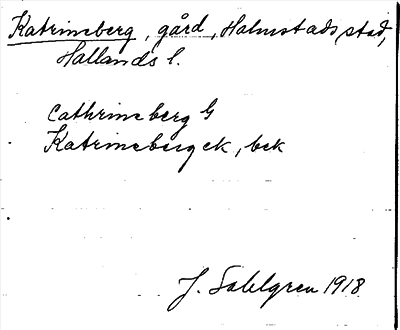 Katrineberg, gård, Halmstads stad,
Hallands l.
Cathrineberg G
Katrineberg ek, bek
J. Sahlgren 1918